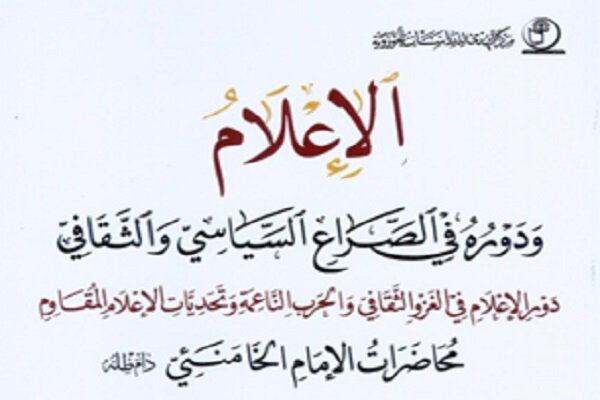 الإِعْلَامُ
وَدَوْرُهُ فِي الصِّرَاعِ السِّيَاسِيِّ وَالثَّقَافِيِّ
دَوْر الإِعْلَام فِي الغَزْو الثَّقَافِيّ وَالحَرْب النَّاعِمَة وَتَحَدِّيَات الإِعْلَام المُقَاوِم
مُحَاضَرَاتُ الإِمَامِ الخَامَنَئِيّ دَامَ ظِلُّهُ